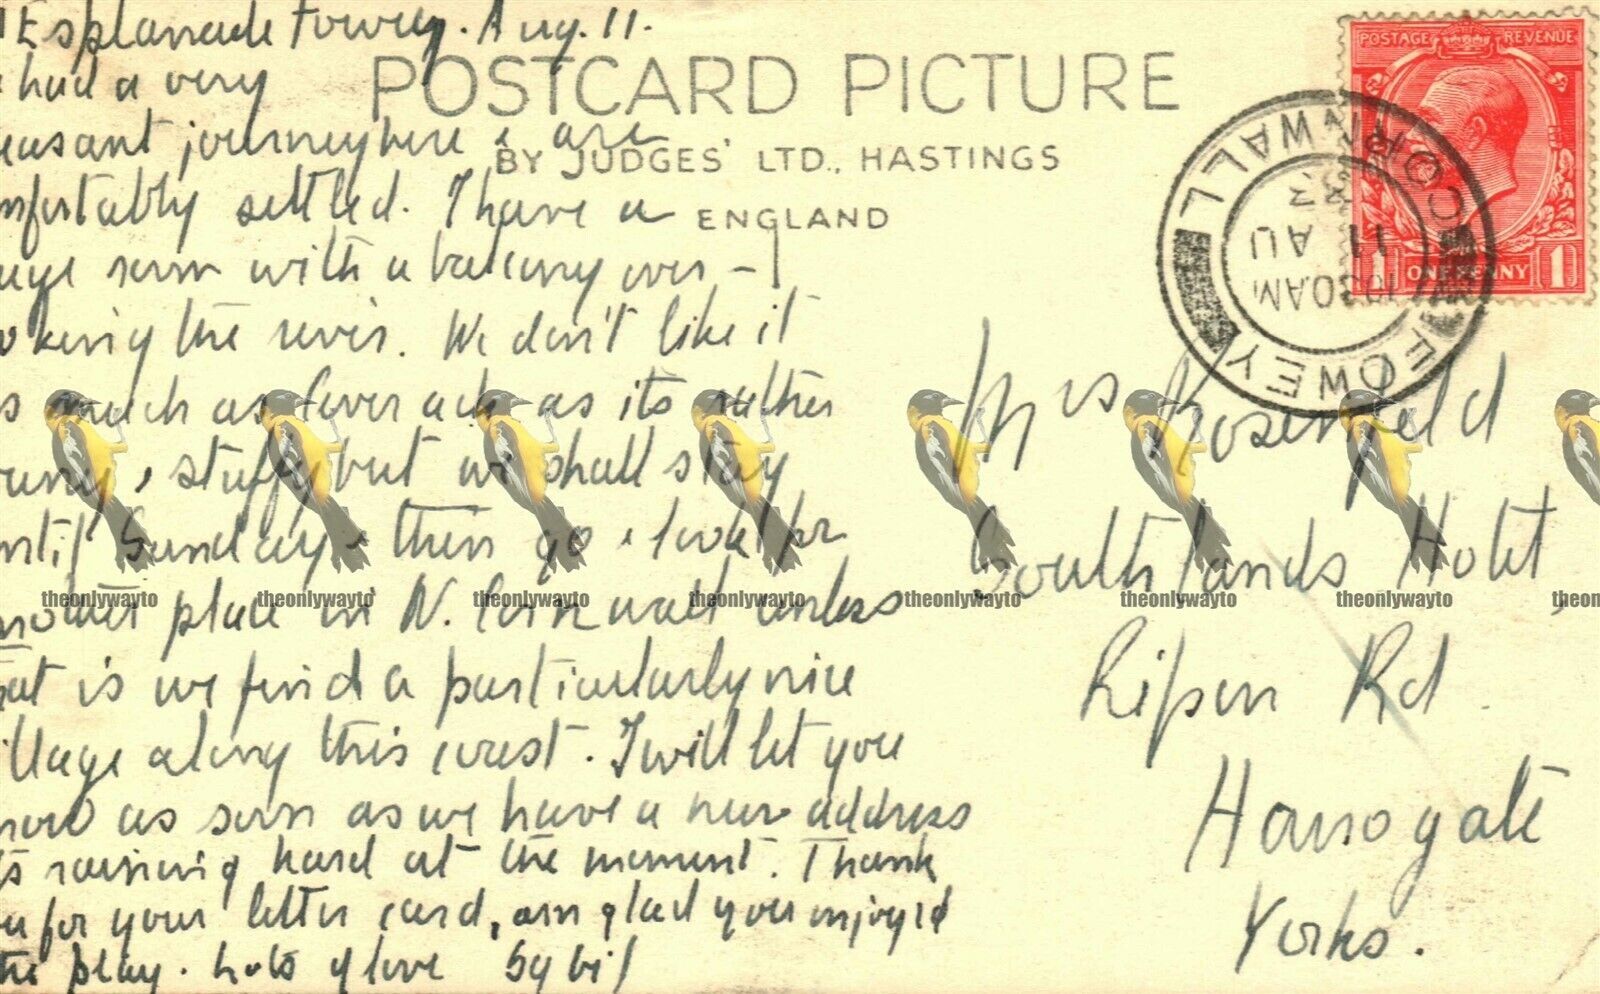 Esplanade Fowey. Aug. 11.
had a very
easant journey here & are
mfortably settled. I have a
uge room with a balcony over-
oking the river. We don't like it
s much as Coverack as its rather
& stuffy but we shall stay
ntil Sunday & then go & look for
nother place in N. Cornwall unless
at is we find a particularly nice
illage along this coast. I will let you
now as soon as we have a new address
ts raining hard at the moment. Thank
u for your letter card, am glad you enjoyed
he play. Lots of love Sybil
POSTCARD PICTURE
BY JUDGES' LTD., HASTINGS
ENGLAND
POSTAGE REVENUE
1 ONE PENNY 1
FOWEY CORNWALL
10.30AM
11 AU
33
Mrs Rosenfeld
Southlands Hotel
Ripon Rd
Harrogate
Yorks.
theonlywayto theonlywayto theonlywayto theonlywayto theonlywayto theonlywayto theonlywayto theon